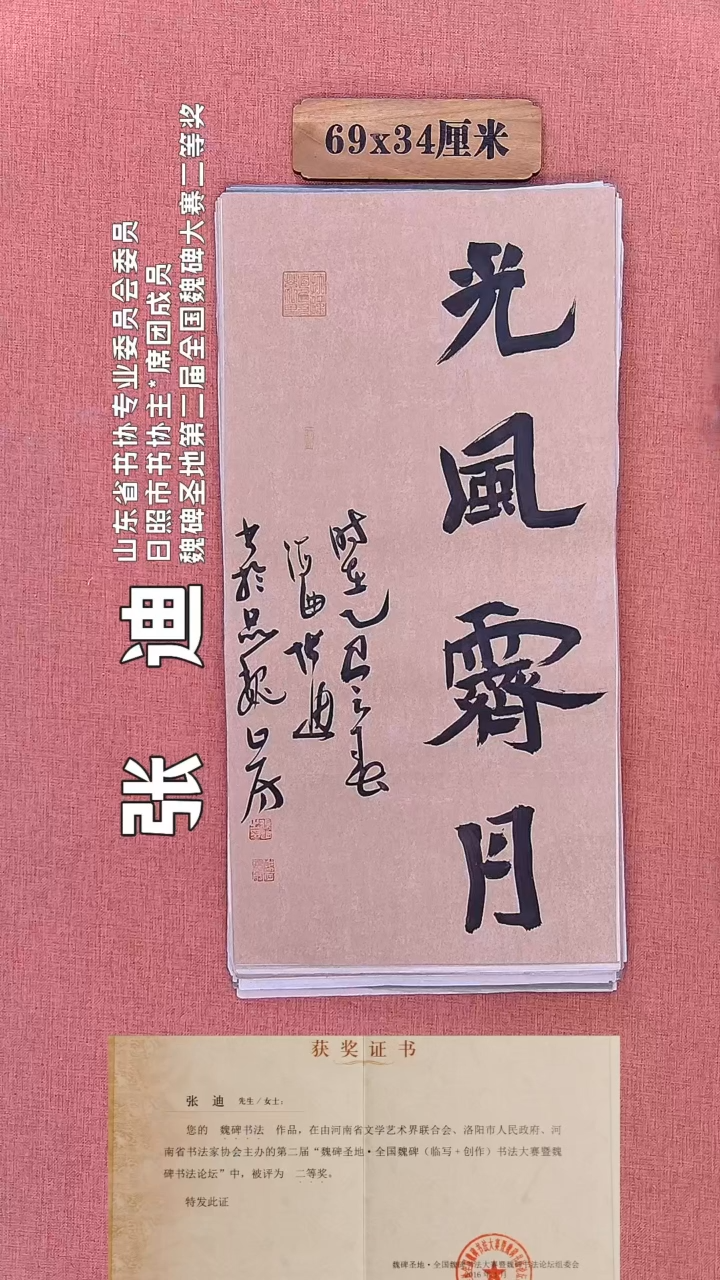 69x34厘米
光風霽月
时在乙巳之春
海曲张迪
书於品魏山房
张 迪
山东省书协专业委员会委员
日照市书协主*席团成员
魏碑圣地第二届全国魏碑大赛二等奖
获奖证书
张 迪 先生/女士:
您的 魏碑书法 作品,在由河南省文学艺术界联合会、洛阳市人民政府、河
南省书法家协会主办的第二届“魏碑圣地·全国魏碑(临写+创作)书法大赛暨魏
碑书法论坛”中,被评为 二等奖。
特发此证
魏碑圣地·全国魏碑书法大赛暨魏碑书法论坛组委会